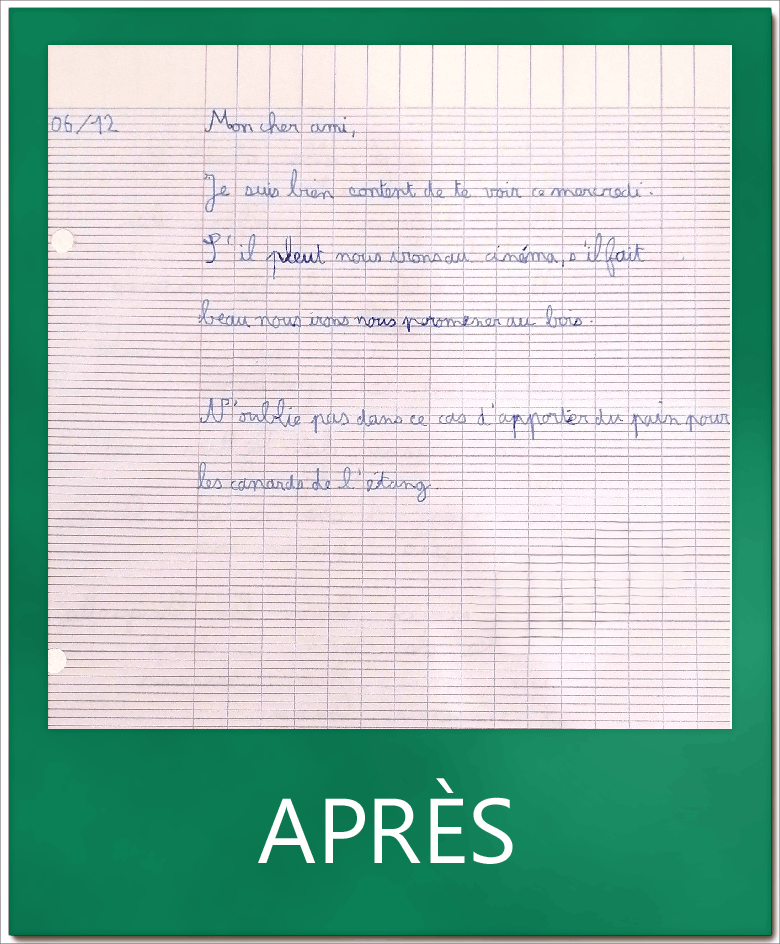 06/12 Mon cher ami,
Je suis bien content de te voir ce mercredi.
S'il pleut nous irons au cinéma, s'il fait
beau nous irons nous promener au bois.
N'oublie pas dans ce cas d'apporter du pain pour
les canards de l'étang.
APRÈS